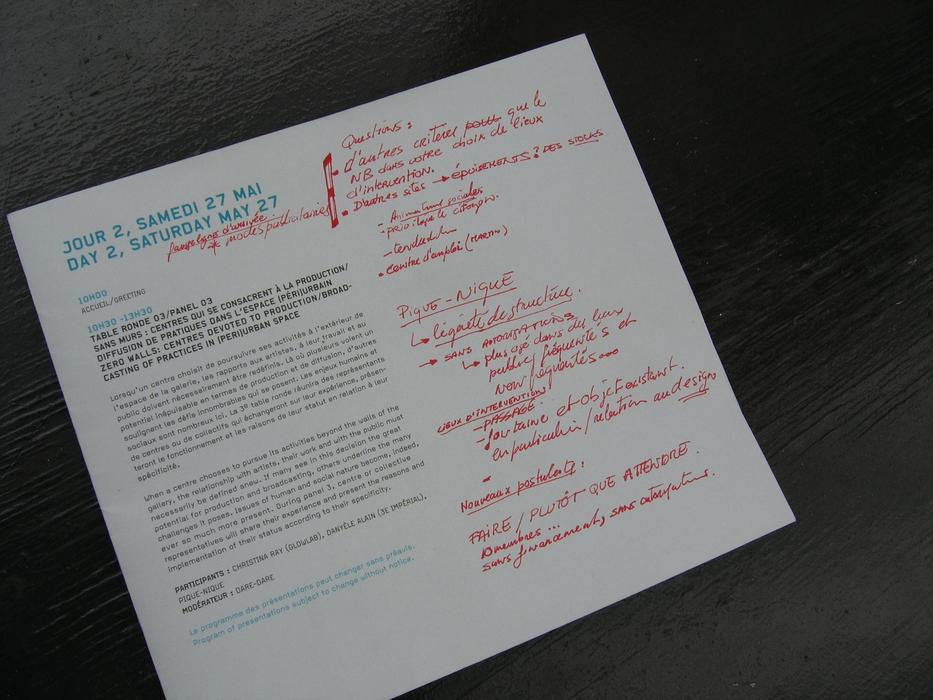 JOUR 2, SAMEDI 27 MAI
DAY 2, SATURDAY MAY 27
* modes publicitaires
10H00
ACCUEIL/GREETING
10H30 -13H30
TABLE RONDE 03/PANEL 03
SANS MURS : CENTRES QUI SE CONSACRENT À LA PRODUCTION/
DIFFUSION DE PRATIQUES DANS L'ESPACE (PÉRI)URBAIN
ZERO WALLS: CENTRES DEVOTED TO PRODUCTION/BROAD-
CASTING OF PRACTICES IN (PERI)URBAN SPACE
Lorsqu'un centre choisit de poursuivre ses activités à l'extérieur de
l'espace de la galerie, les rapports aux artistes, à leur travail et au
public doivent nécessairement être redéfinis. Là où plusieurs voient un
potentiel inépuisable en termes de production et de diffusion, d'autres
soulignent les défis innombrables qui se posent. Les enjeux humains et
sociaux sont nombreux ici. La 3e table ronde réunira des représentants
de centres ou de collectifs qui échangeront sur leur expérience, présen-
teront le fonctionnement et les raisons de leur statut en relation à leur
spécificité.
When a centre chooses to pursue its activities beyond the walls of the
gallery, the relationship with artists, their work and with the public must
necessarily be defined anew. If many see in this decision the great
potential for production and broadcasting, others underline the many
challenges it poses. Issues of human and social nature become, indeed,
ever so much more present. During panel 3, centre or collective
representatives will share their experience and present the reasons and
implementation of their status according to their specificity.
PARTICIPANTS : CHRISTINA RAY (GLOWLAB), DANYÈLE ALAIN (3E IMPÉRIAL),
PIQUE-NIQUE
MODÉRATEUR : DARE-DARE
Le programme des présentations peut changer sans préavis.
Program of presentations subject to change without notice.
Questions :
d'autres critères pour que le
NB dans votre choix de lieux
d'intervention.
• D'autres sites → ÉPUISEMENTS? DES STOCKS.
- sociales
- privilégie le citoyen.
-
• centre d'emploi (MARTIN)
PIQUE-NIQUE
↳ légèreté de structure.
→ SANS AUTORISATIONS
↳ plus osé dans des lieux
public/fréquentés et
non fréquentés...
LIEUX D'INTERVENTION
- PASSAGE.
- fontaine et objet existant.
en particulier/relation au design
-
Nouveaux postulats :
FAIRE / PLUTÔT QUE ATTENDRE.
10 membres ...
sans financement, sans autorisation.